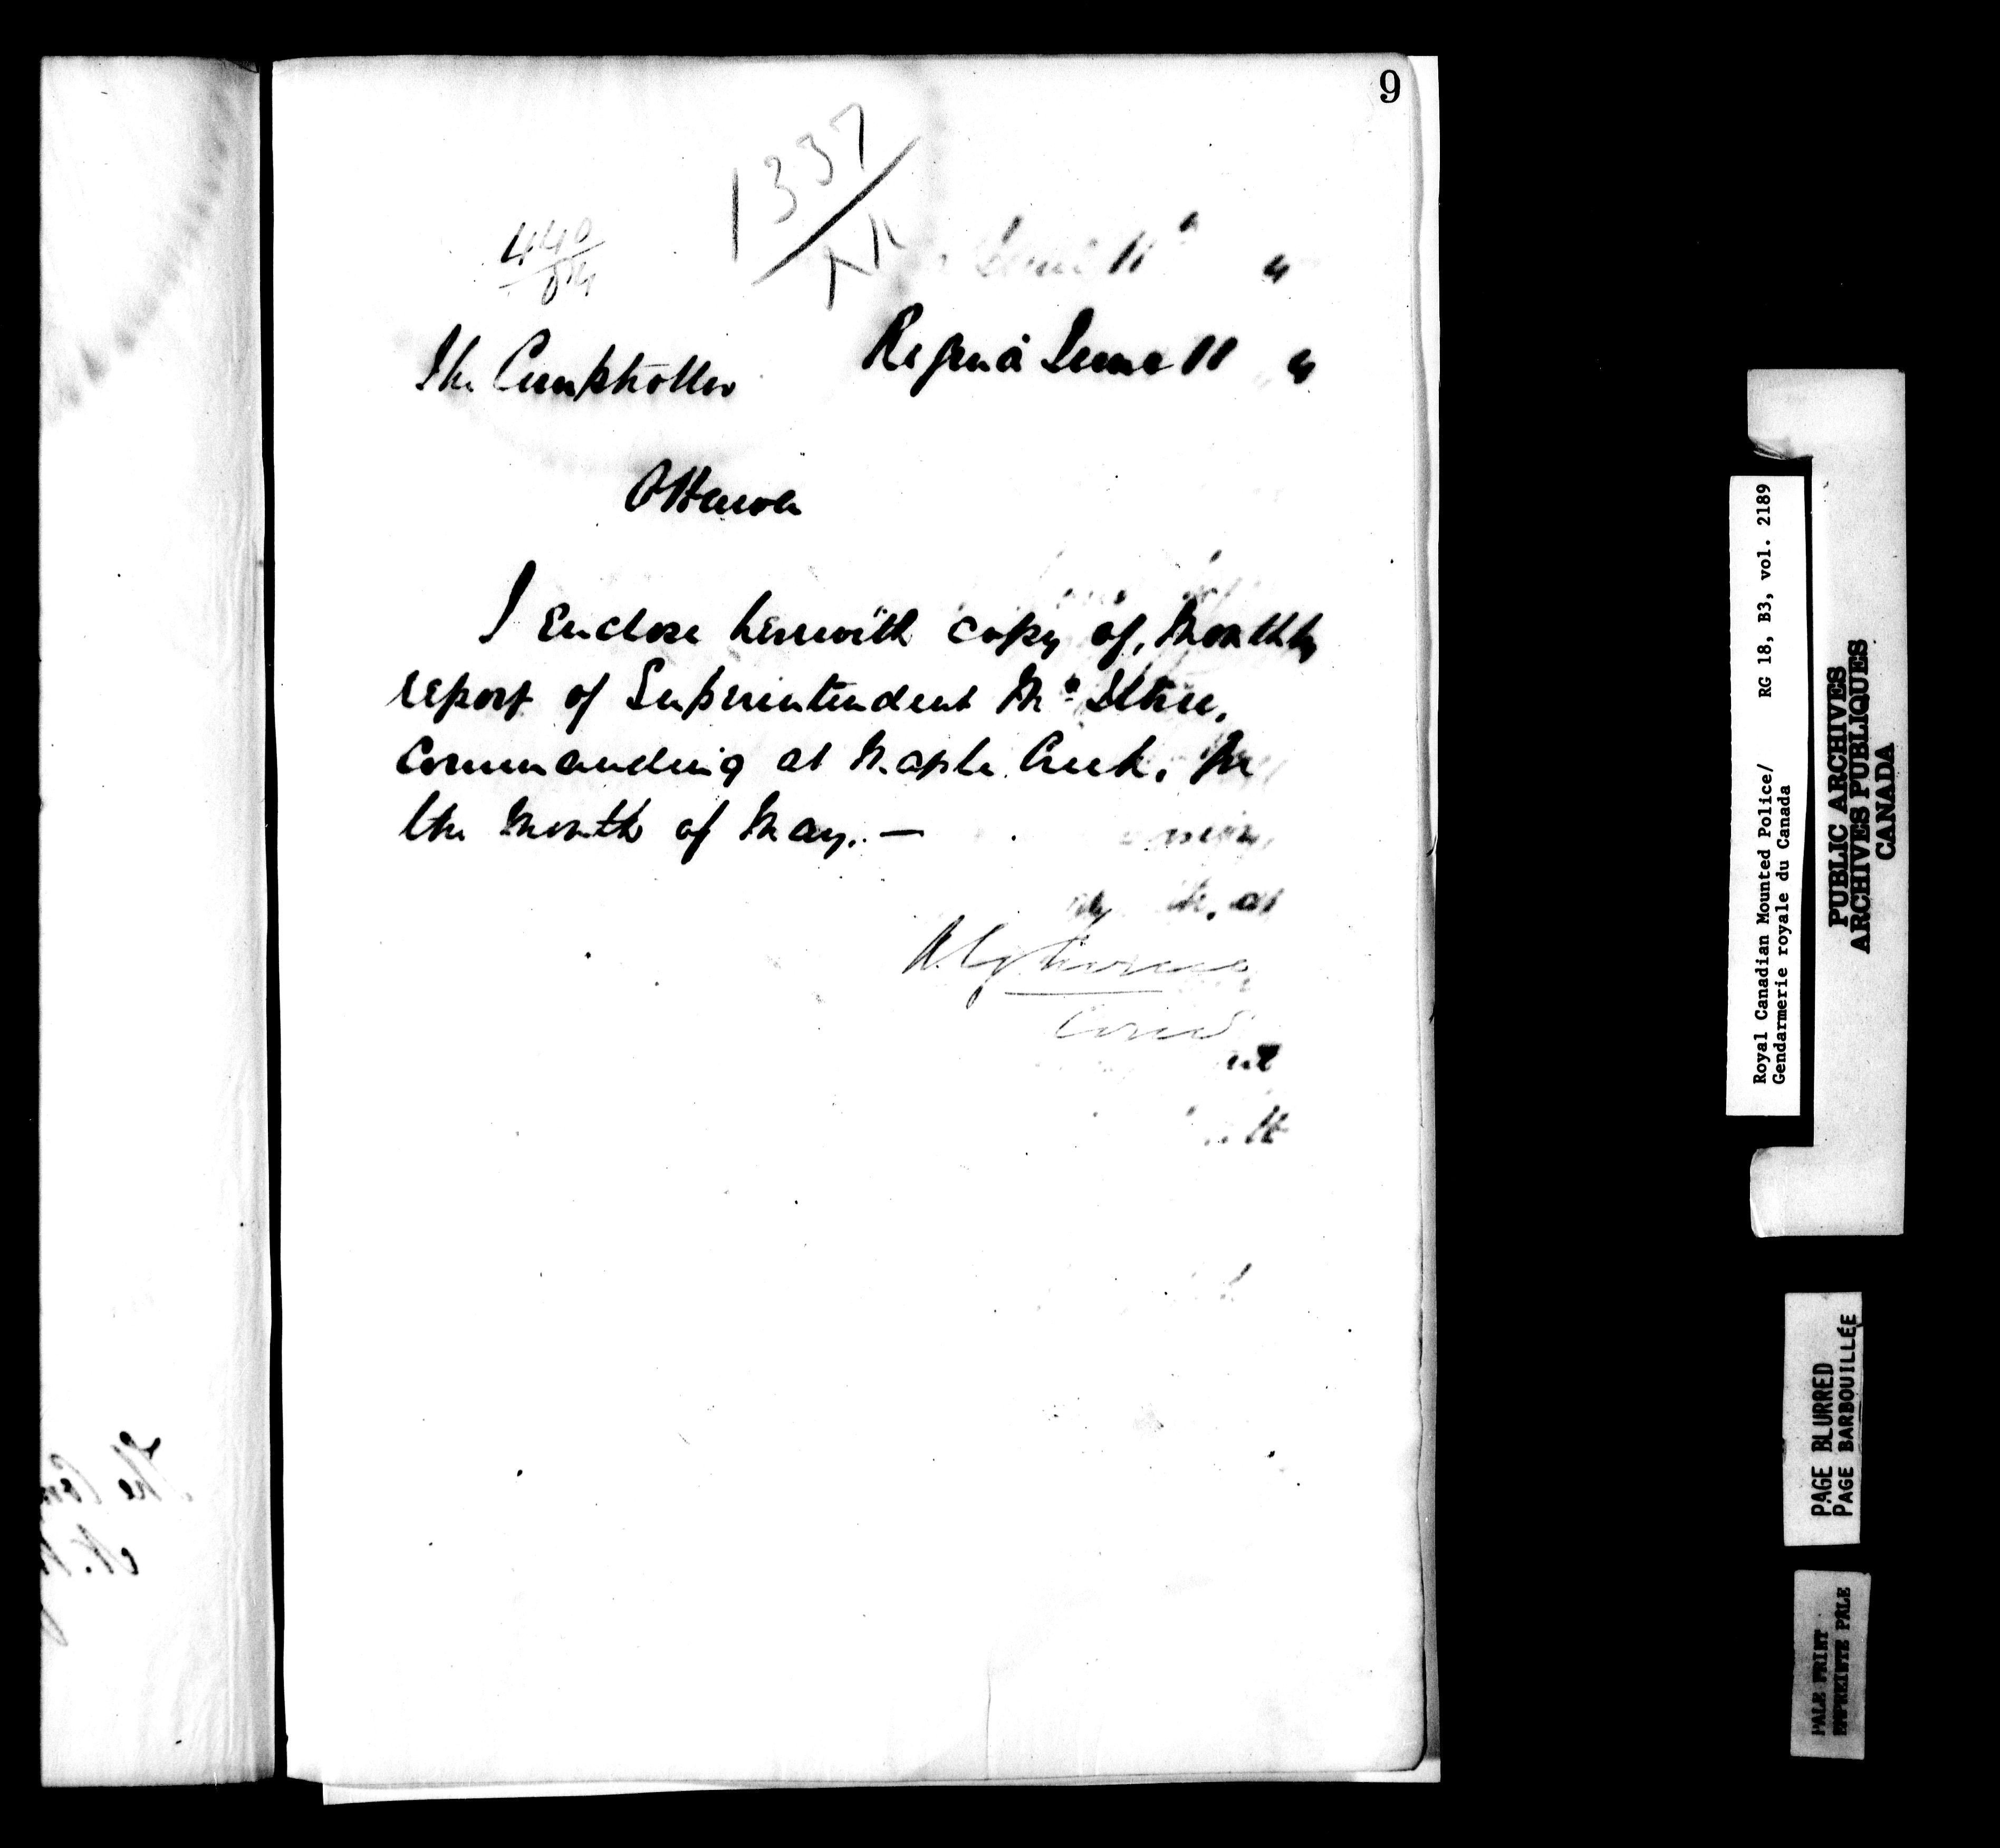 9
1337
440
84
Regina June 11 4
The Comptroller
Ottawa
I enclose herewith copy of, Monthly
report of Superintendent Mc Illree,
Commanding at Maple Creek, for
the Month of May. —
Com
Royal Canadian Mounted Police/ RG 18, B3, vol. 2189
Gendarmerie royale du Canada
PUBLIC ARCHIVES
ARCHIVES PUBLIQUES
CANADA
PAGE BLURRED
PAGE BARBOUILLÉE
PALE PRINT
EMPREINTE PÂLE